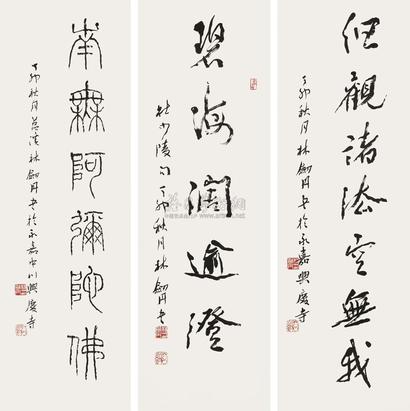 但觀諸法空無我
丁卯秋月林劍丹書於永嘉興慶寺
碧海闊逾澄
杜少陵句丁卯秋月林劍丹書
南無阿彌陀佛
丁卯秋月 林劍丹書於永嘉中川興慶寺